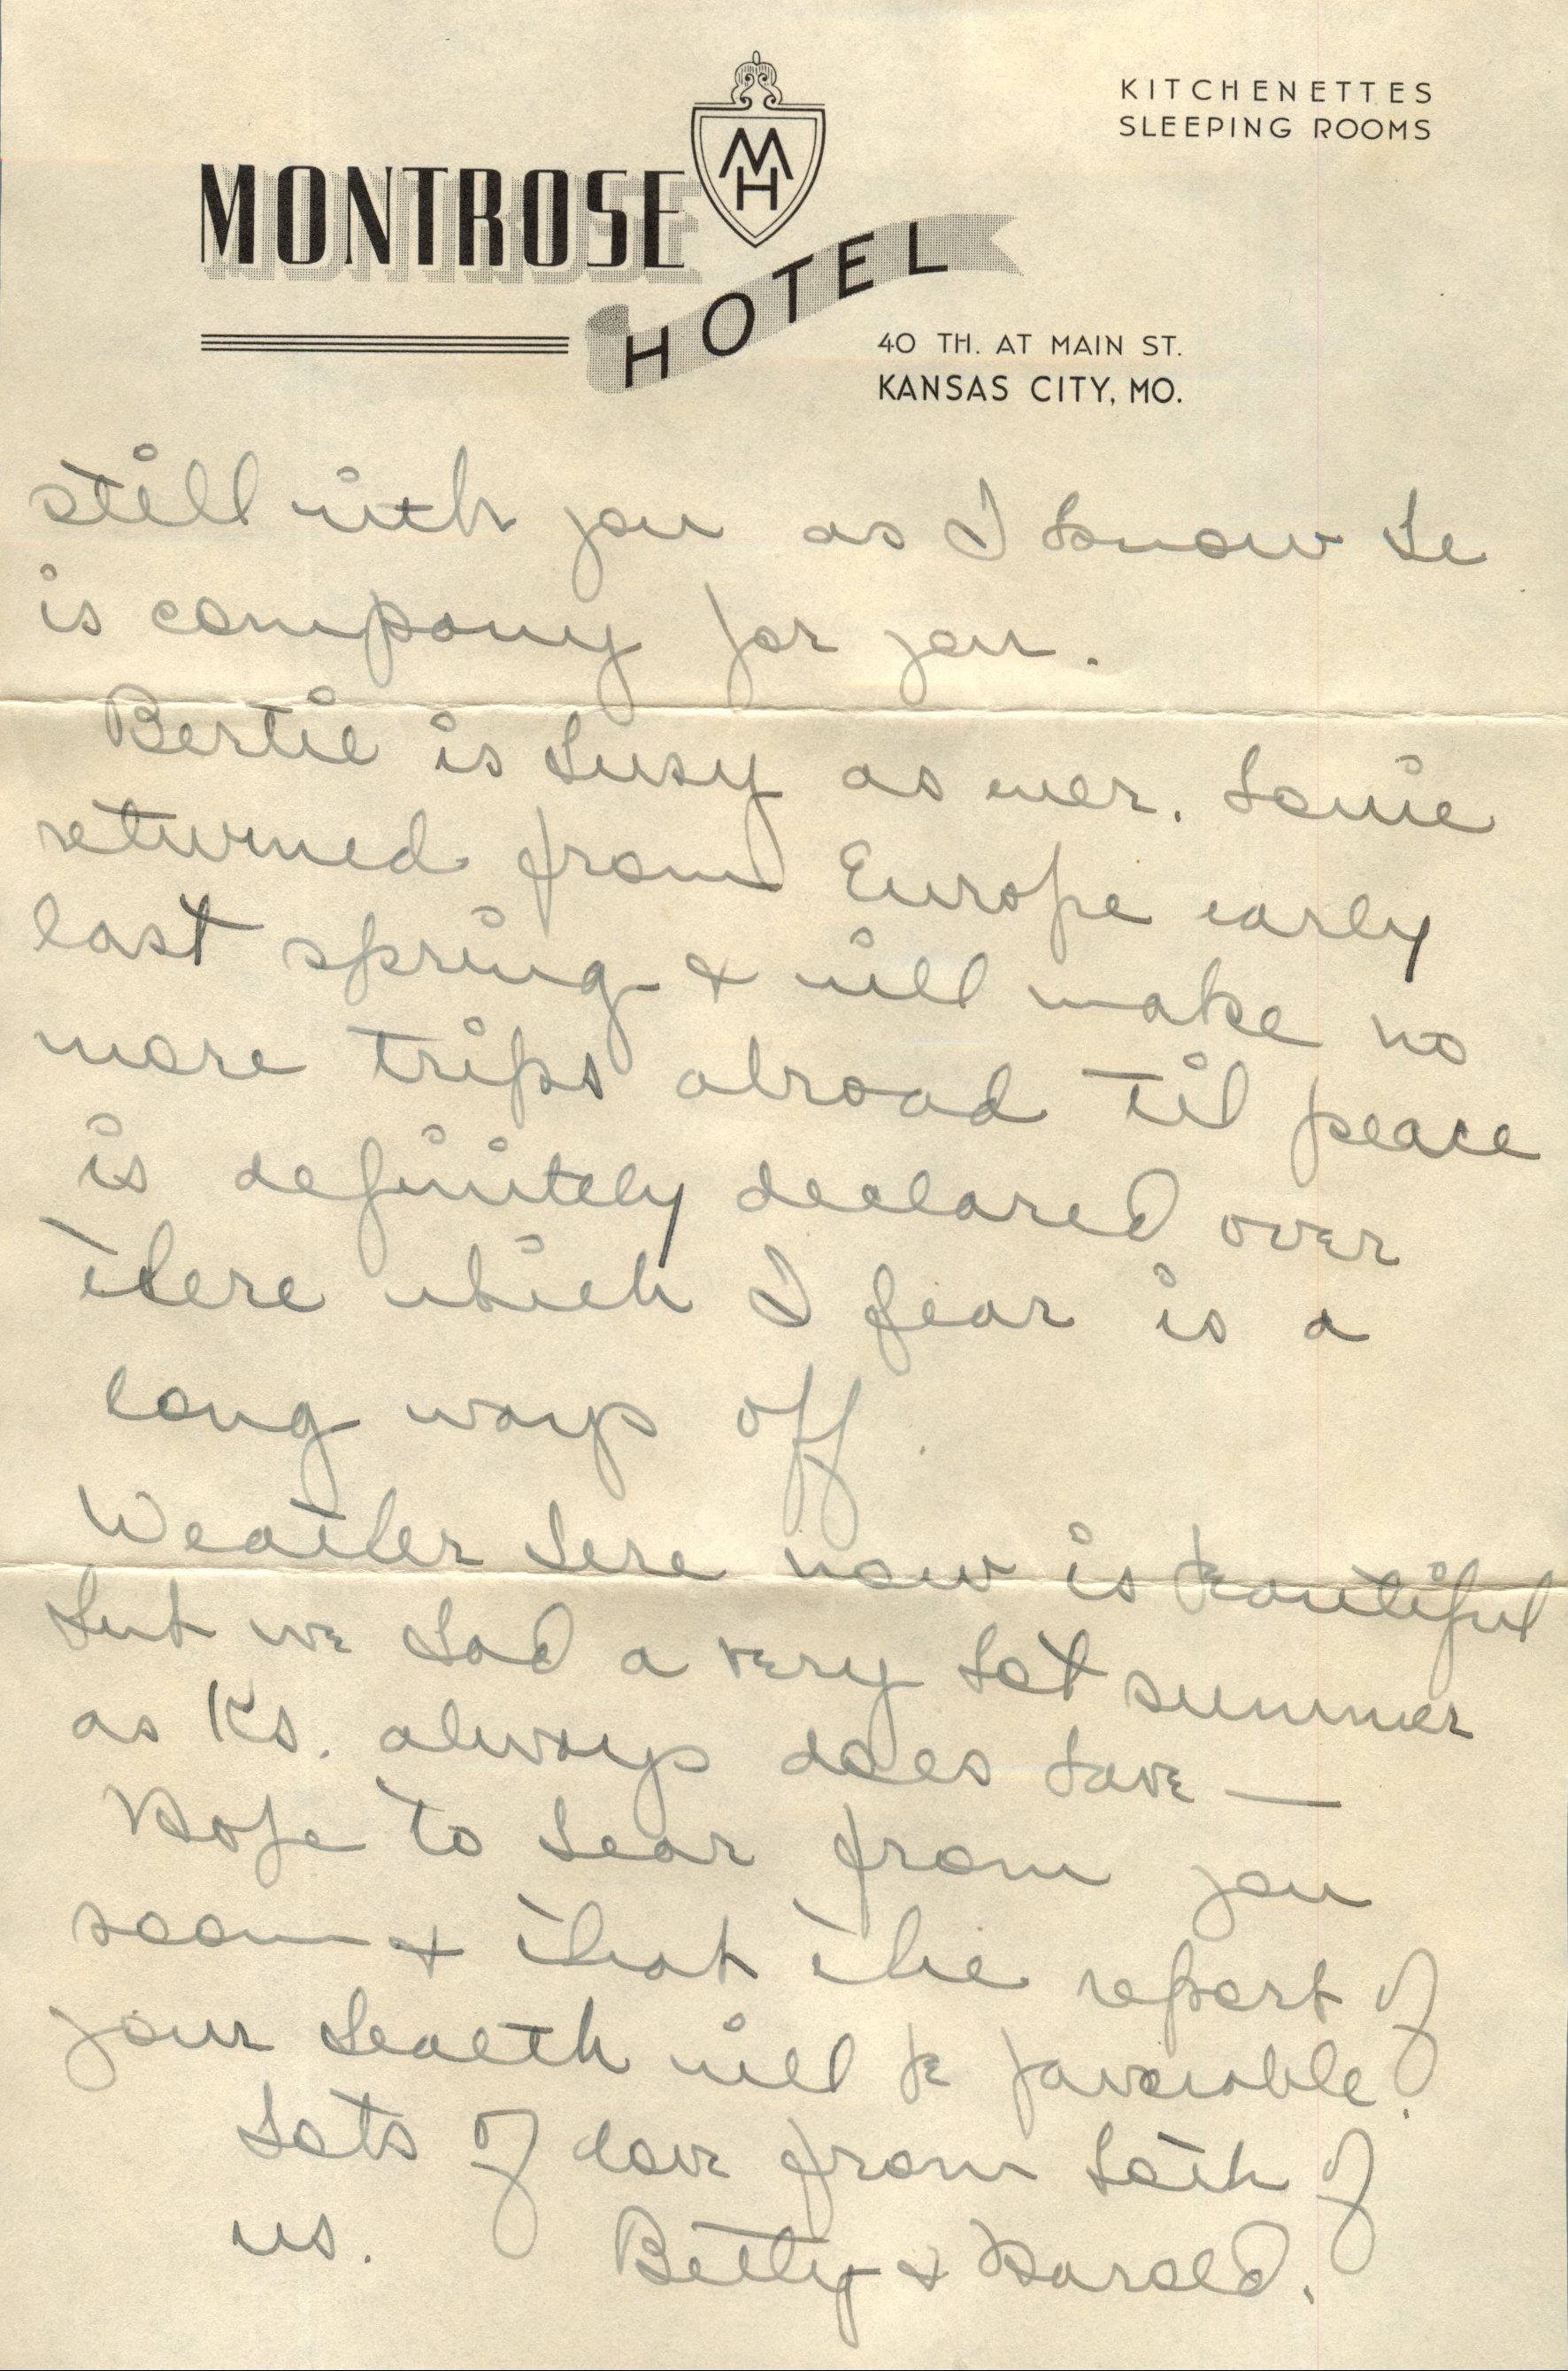 KITCHENETTES
SLEEPING ROOMS
MH
MONTROSE
HOTEL
40 TH. AT MAIN ST.
KANSAS CITY, MO.
still with you as I know he
is company for you.
Bertie is busy as ever. Louie
returned from Europe early
last spring & will make no
more trips abroad til peace
is definitely declared over
there which I fear is a
long ways off.
Weather here now is beautiful
but we had a very hot summer
as Ks. always does have —
Hope to hear from you
soon & that the report of
your health will be favorable.
Lots of love from both of
us. Betty & Harold.